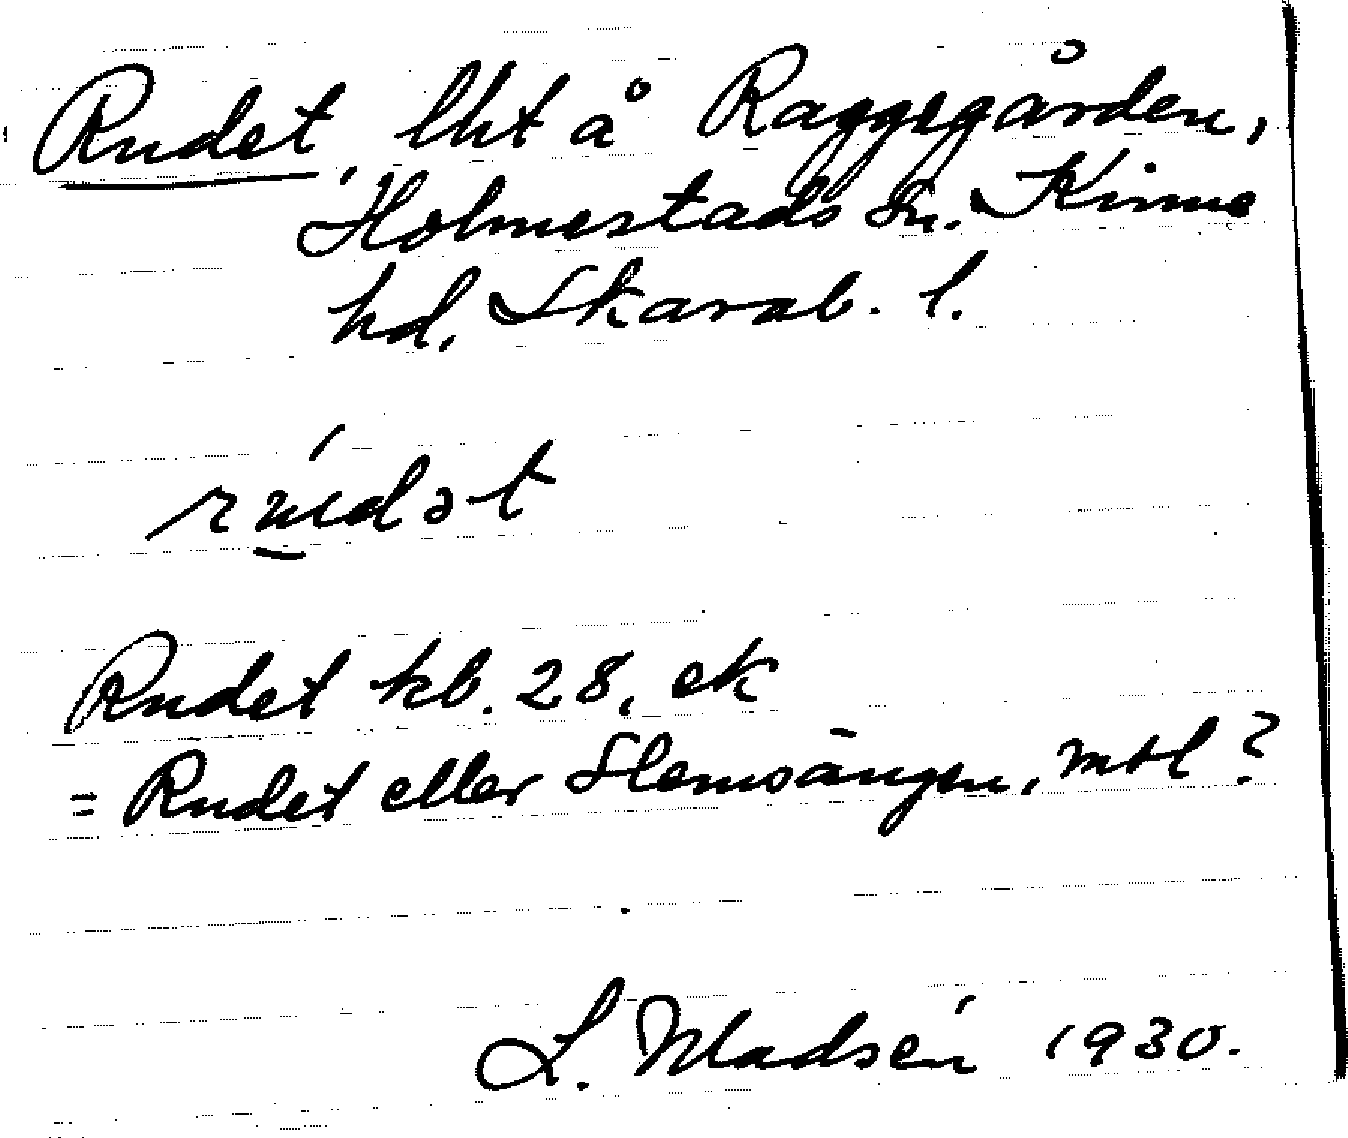 Rudet, lht å Raggegården,
Holmestads sn. Kinne
hd, Skarab. l.
rúdət
Rudet kb. 28, ek
= Rudet eller Slemsängen, mtl?
L. Madsén 1930.